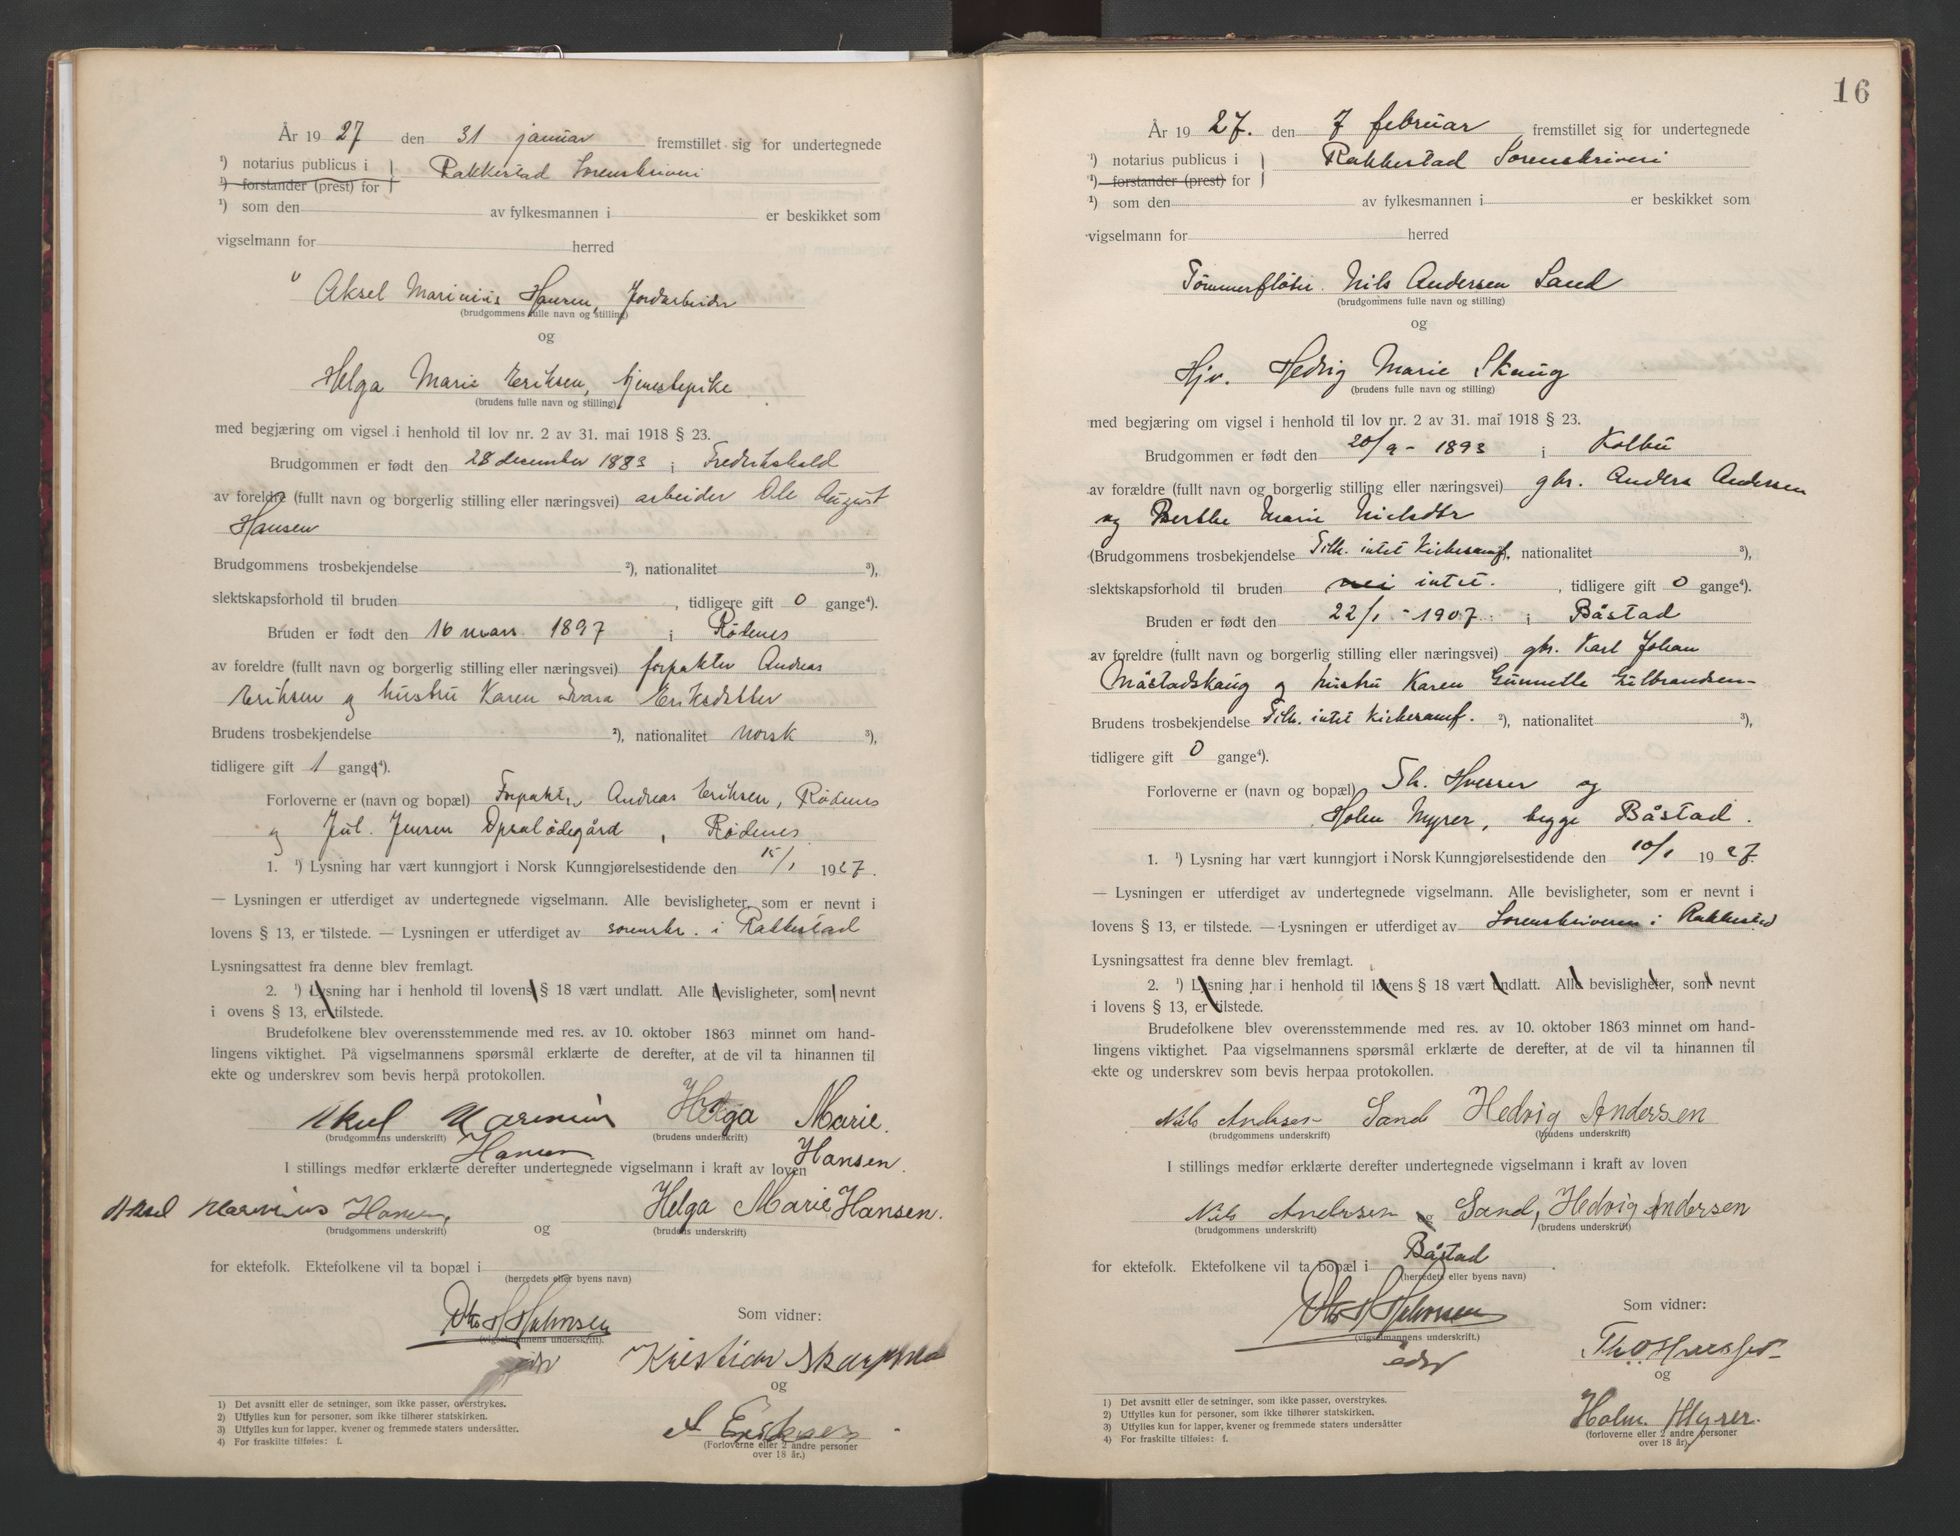 År 1927 den 31 januar fremstillet sig for undertegnede
¹) notarius publicus i } Rakkestad Sorenskriveri
¹) forstander (prest) for
¹) som den av fylkesmannen i er beskikket som
vigselmann for herred
Aksel Marinius Hansen, Jordarbeider
(brudgommens fulle navn og stilling)
og
Helga Marie Eriksen, tjenestepike
(brudens fulle navn og stilling)
med begjæring om vigsel i henhold til lov nr. 2 av 31. mai 1918 § 23.
Brudgommen er født den 28 december 1883 i Fredrikshald
av foreldre (fullt navn og borgerlig stilling eller næringsvei) arbeider Ole August
Hansen
Brudgommens trosbekjendelse ²), nationalitet ³),
slektskapsforhold til bruden , tidligere gift 0 gange⁴).
Bruden er født den 16 mars 1897 i Rødenes
av foreldre (fullt navn og borgerlig stilling eller næringsvei) forpakter Andreas
Eriksen og hustru Karen Eriksdatter
Brudens trosbekjendelse ²), nationalitet norsk ³),
tidligere gift 1 gang⁴).
Forloverne er (navn og bopæl) Forpakter Andreas Eriksen, Rødenes
og Jul. Jensen Opsalødegård, Rødenes
1. ¹) Lysning har vært kunngjort i Norsk Kunngjørelsestidende den 15/1 1927.
— Lysningen er utferdiget av undertegnede vigselmann. Alle bevisligheter, som er nevnt i
lovens § 13, er tilstede. — Lysningen er utferdiget av sorenskr. i Rakkestad
Lysningsattest fra denne blev fremlagt.
2. ¹) Lysning har i henhold til lovens § 18 vært undlatt. Alle bevisligheter, som nevnt
i ovens § 13, er tilstede.
Brudefolkene blev overensstemmende med res. av 10. oktober 1863 minnet om hand-
lingens viktighet. På vigselmannens spørsmål erklærte de derefter, at de vil ta hinannen til
ekte og underskrev som bevis herpå protokollen.
Aksel Marinius Helga Marie
(brudgommens underskrift) (brudens underskrift)
Hansen Hansen.
I stillings medfør erklærte derefter undertegnede vigselmann i kraft av loven
Aksel Marinius Hansen, og Helga Marie Hansen.
(brudgommens underskrift) (brudens underskrift)
for ektefolk. Ektefolkene vil ta bopæl i
(herredets eller byens navn)
Som vidner:
(vigselmannens underskrift).
edsv Kristian
og
A Eriksen
(Forloverne eller 2 andre personer
over 18 år.)
1) Det avsnitt eller de setninger, som ikke passer, overstrykes.
2) Utfylles kun for personer, som ikke tilhører statskirken.
3) Utfylles kun for lapper, kvener og fremmede staters undersåtter.
4) For fraskilte tilføies: f.
16
År 1927. den 7 februar fremstillet sig for undertegnede
¹) notarius publicus i } Rakkestad Sorenskriveri
¹) forstander (prest) for
¹) som den av fylkesmannen i er beskikket som
vigselmann for herred
Tømmerfløter Nils Andersen Sand
(brudgommens fulle navn og stilling)
og
Hjv. Hedvig Marie Skaug
(brudens fulle navn og stilling)
med begjæring om vigsel i henhold til lov nr. 2 av 31. mai 1918 § 23.
Brudgommen er født den 20/9 - 1893 i Kolbu
av forældre (fullt navn og borgerlig stilling eller næringsvei) gbr. Anders Andersen
og Berthe Marie Nielsdtr
(Brudgommens trosbekjendelse Tilh. intet Kirkesamf. ²), nationalitet ³),
slektskapsforhold til bruden nei intet. , tidligere gift 0 gange⁴).
Bruden er født den 22/1 - 1907 i Båstad
av foreldre (fullt navn og borgerlig stilling eller næringsvei) gbr. Karl Johan
Måstadskaug og hustru Karen Gunnette Gulbrandsen-
Brudens trosbekjendelse Tilh. intet Kirkesamf. ²), nationalitet ³),
tidligere gift 0 gange⁴).
Forloverne er (navn og bopæl) Th. Huesser og
Holm Myrer, begge Båstad.
1. ¹) Lysning har vært kunngjort i Norsk Kunngjørelsestidende den 10/1 1927.
— Lysningen er utferdiget av undertegnede vigselmann. Alle bevisligheter, som er nevnt i
lovens § 13, er tilstede. — Lysningen er utferdiget av Sorenskriveren i Rakkestad
Lysningsattest fra denne blev fremlagt.
2. ¹) Lysning har i henhold til lovens § 18 vært undlatt. Alle bevisligheter, som nevnt
i lovens § 13, er tilstede.
Brudefolkene blev overensstemmende med res. av 10. oktober 1863 minnet om hand-
lingens viktighet. Paa vigselmannens spørsmål erklærte de derefter, at de vil ta hinannen til
ekte og underskrev som bevis herpaa protokollen.
Nils Andersen Sand Hedvig Andersen
(brudgommens underskrift) (brudens underskrift)
I stillings medfør erklærte derefter undertegnede vigselmann i kraft av loven
Nils Andersen og Sand, Hedvig Andersen
(brudgommens underskrift) (brudens underskrift)
for ektefolk. Ektefolkene vil ta bopæl i Båstad.
(herredets eller byens navn)
Som vidner:
(vigselmannens underskrift.)
edsv
og
Holm Myrer.
(forloverne eller 2 andre personer
over 18 år).
1) Det avsnitt eller de setninger, som ikke passer, overstrykes.
2) Utfylles kun for personer, som ikke tilhører statskirken.
3) Utfylles kun for lapper, kvener og fremmede staters undersåtter
4) For fraskilte tilføies: f.